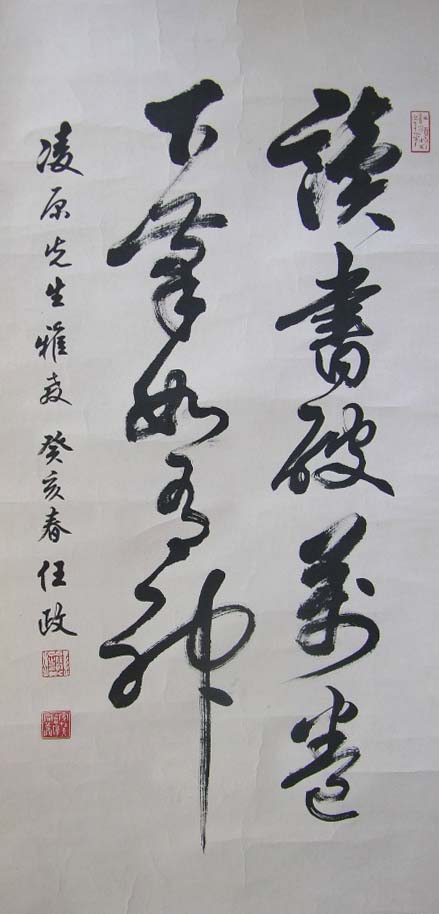 讀書破萬卷
下筆如有神
凌原先生雅教 癸亥春 任政